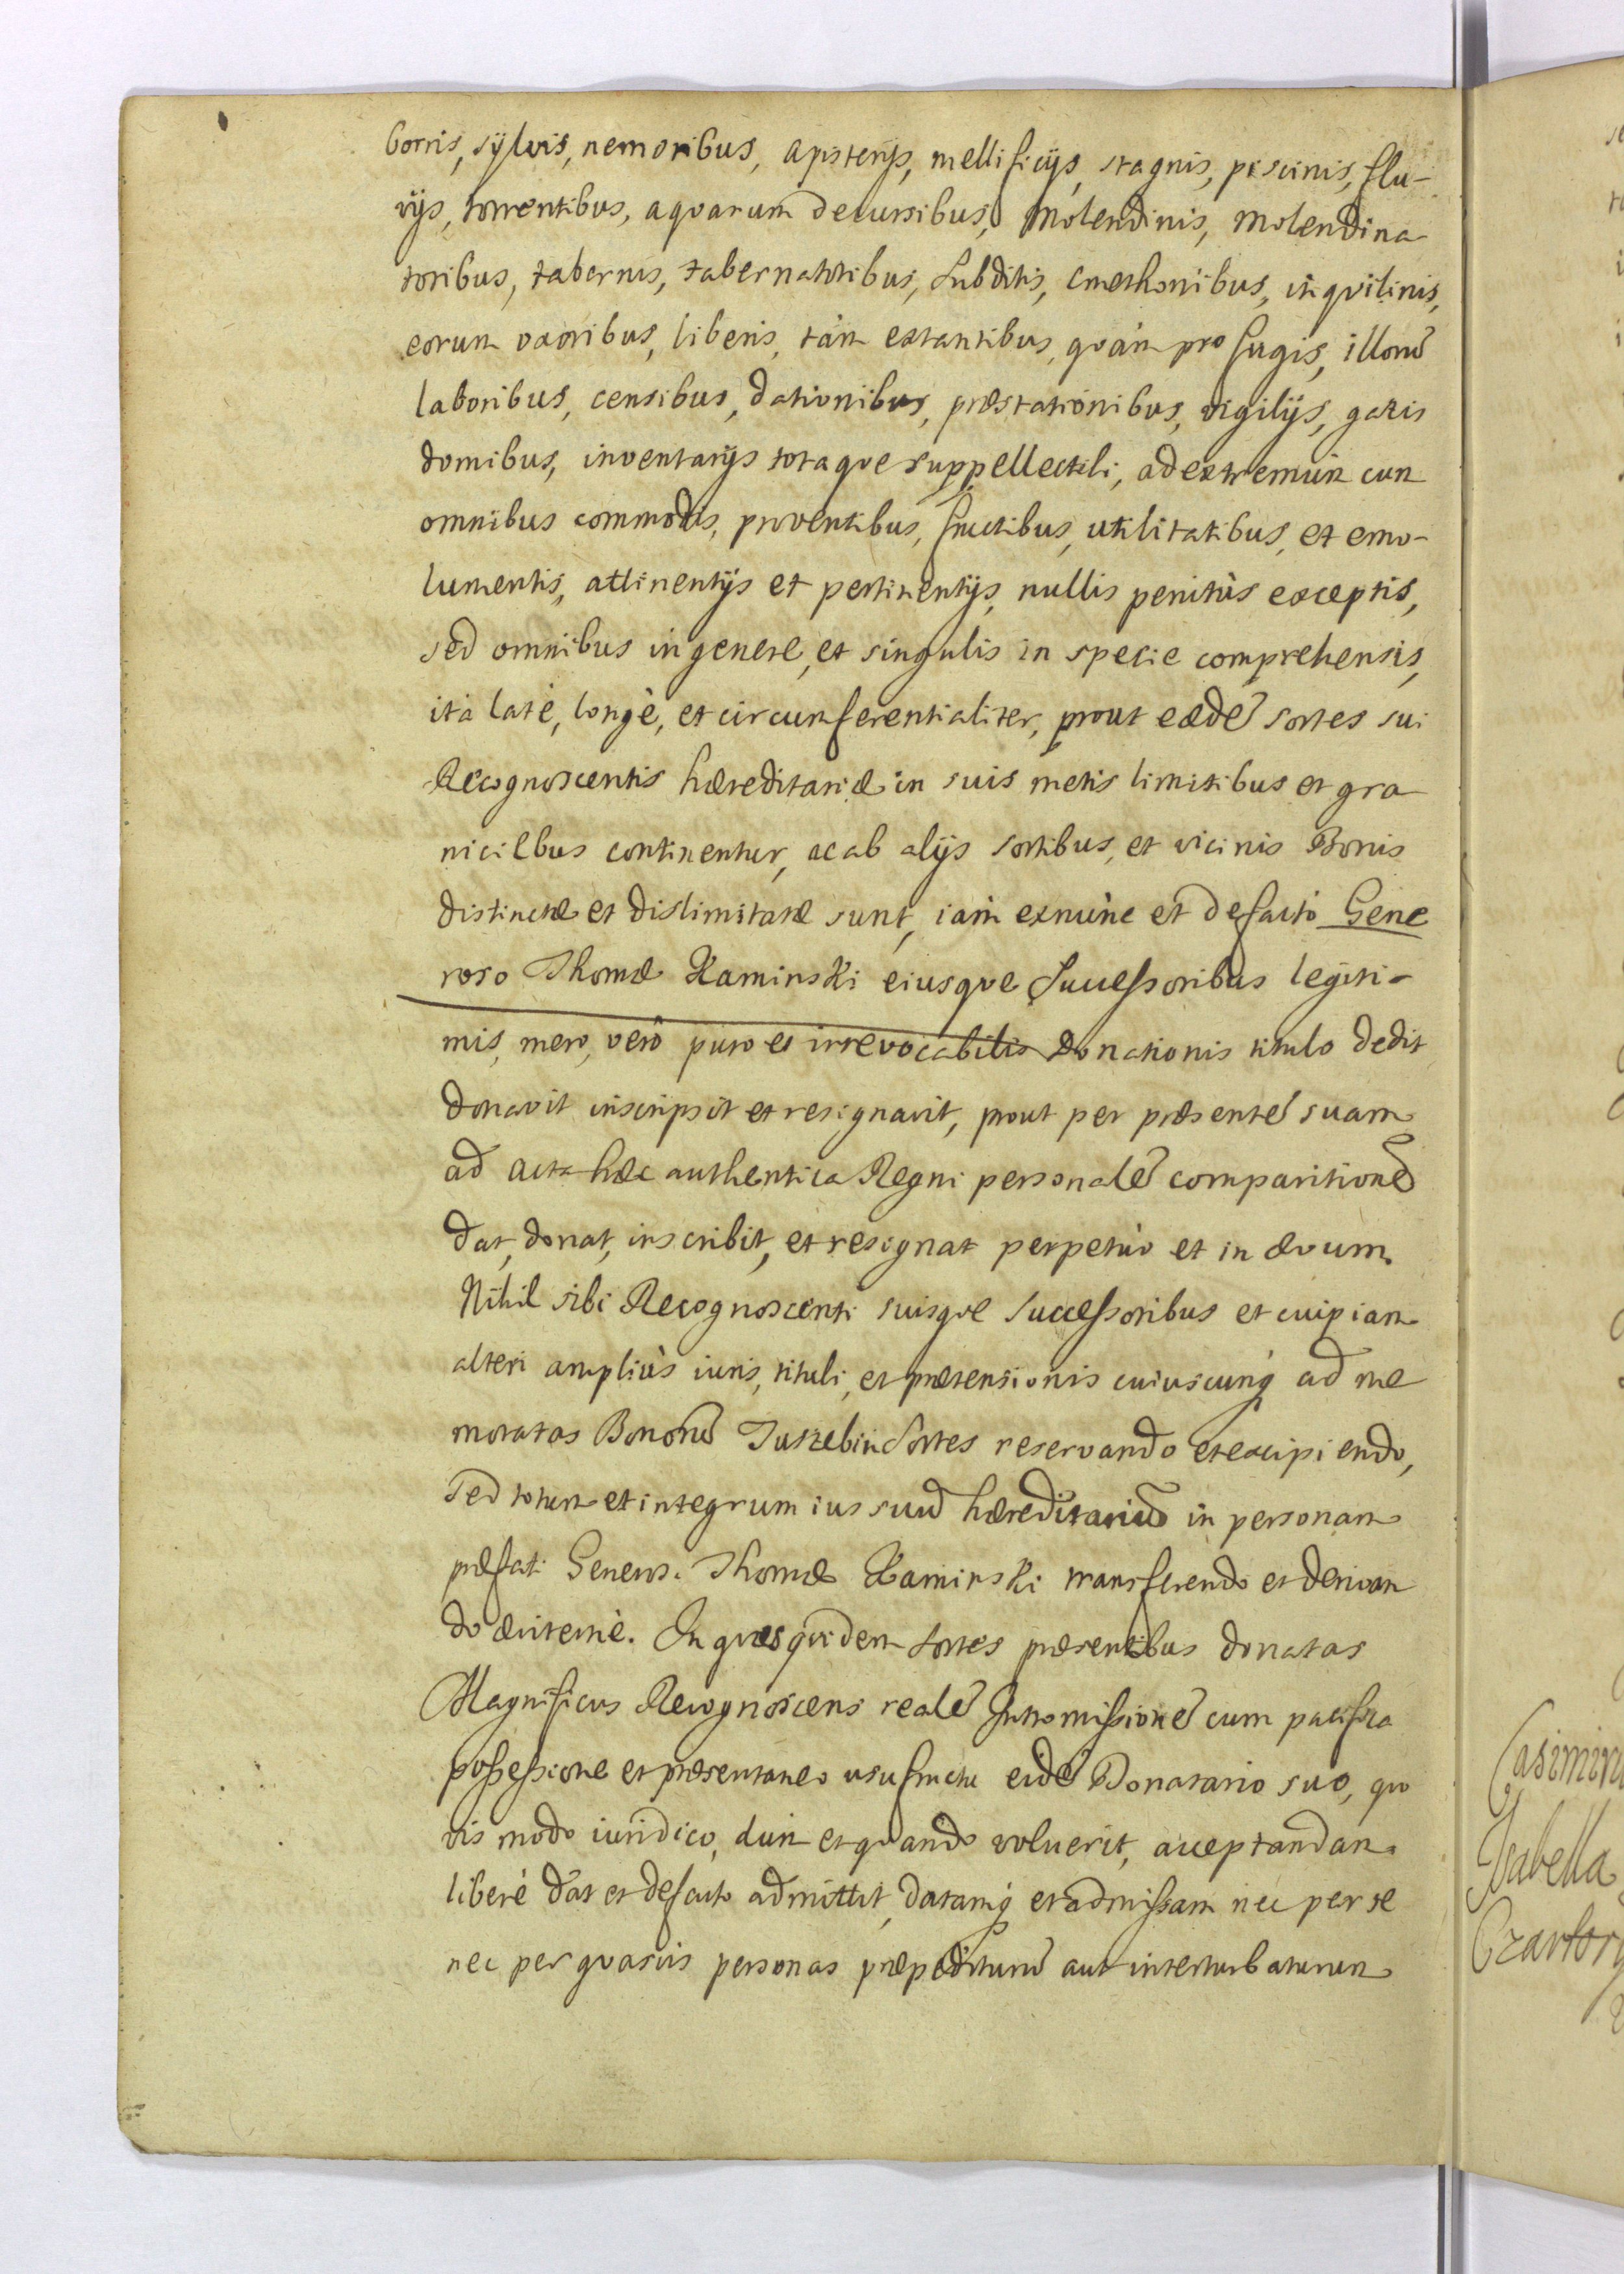 borris, sÿlvis, nemoribus, apisterijs, mellificijs, stagnis, piscinis, flu-
vijs, torrentibus, aquarum decursibus, Molendinis, Molendina
toribus, tabernis, tabernatoribus, Subditis, Cmethonibus, inquilinis,
eorum uxoribus, liberis, tàm extantibus, quàm profugis, illorū
laboribus, censibus, dationibus, præstationibus, vigilijs, gazis
domibus, inventarijs totaque suppellectili, ad extremùm cum
omnibus commodis, proventibus, fructibus, utilitatibus, et emo-
lumentis, attinentijs et pertinentijs, nullis penitùs exceptis,
sed omnibus in genere, et singulis in specie comprehensis,
ità latè, longè, et circumferentialiter, prout eædē sortes sui
Recognoscentis hæreditariæ in suis metis limitibus et gra
niciebus continentur, ac ab alijs sortibus, et vicinis Bonis
distinctæ et dislimitatæ sunt, iàm exnùnc et defactò Gene
roso Thomæ Kaminski eiusque Successoribus legiti-
mis, mero, verò puro et irrevocabilis Donationis titulo dedit
donavit inscripsit et resignavit, prout per præsentē suam
ad acta hæc authentica Regni personalē comparitionē
dat, donat, inscribit, et resignat perpetùo et in ævum.
Nihil sibi Recognoscenti suisque Successoribus et cuipiam
alteri ampliùs iuris, tituli, et prætensionis cuiuscunq ad me
moratas Bonorū Justrebin Sortes reservando et excipiendo,
Sed totum et integrum ius suū hæreditariū in personam
præfati Generosi Thomæ Kaminski transferendo et derivan
do æviternè. In quas quidem Sortes præsentibus donatas
Magnificus Recognoscens realē Intromissionē cum pacifica
possessione et præsentaneo usufructu eidē Donatario suo, quo
vis modo iuridico, dum et quando voluerit, acceptandam
liberè dat et defacto admittit, datamq et admissam nec per se
nec per quasvis personas præpediturū aut interturbaturum
Casimirus
Isabella